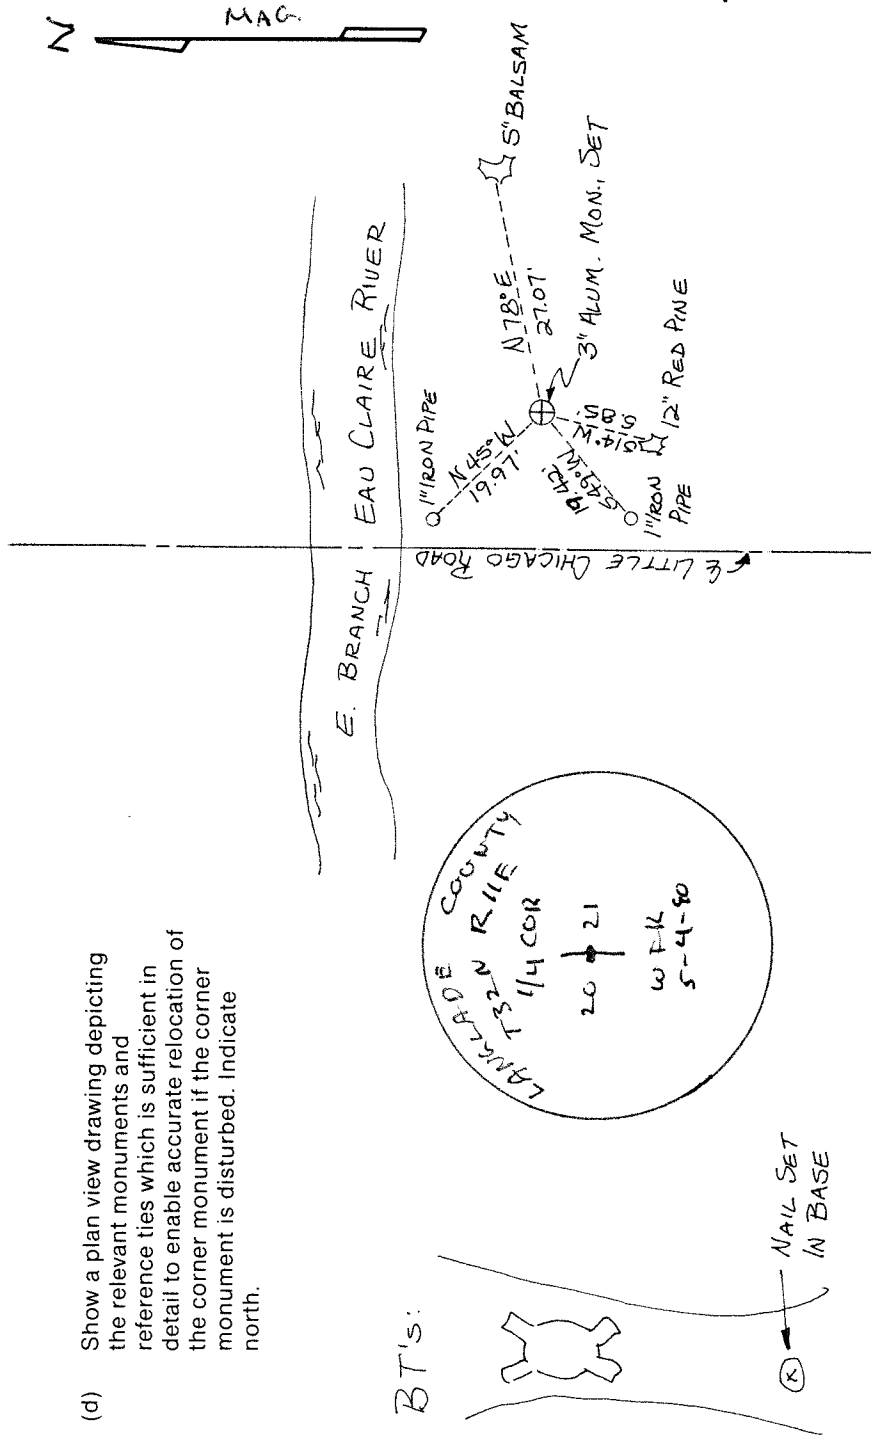 (d) Show a plan view drawing depicting
the relevant monuments and
reference ties which is sufficient in
detail to enable accurate relocation of
the corner monument if the corner
monument is disturbed. Indicate
north.
N
MAG.
E. BRANCH EAU CLAIRE RIVER
1" IRON PIPE
N 45° W
19.97'
N 78° E
27.07'
5" BALSAM
3" ALUM. MON., SET
S 14° W
5.85'
12" RED PINE
S 49° W
19.42'
1" IRON
PIPE
℄ LITTLE CHICAGO ROAD
LANGLADE COUNTY
T32N R11E
1/4 COR
20 21
5-4-90
BT's:
NAIL SET
IN BASE